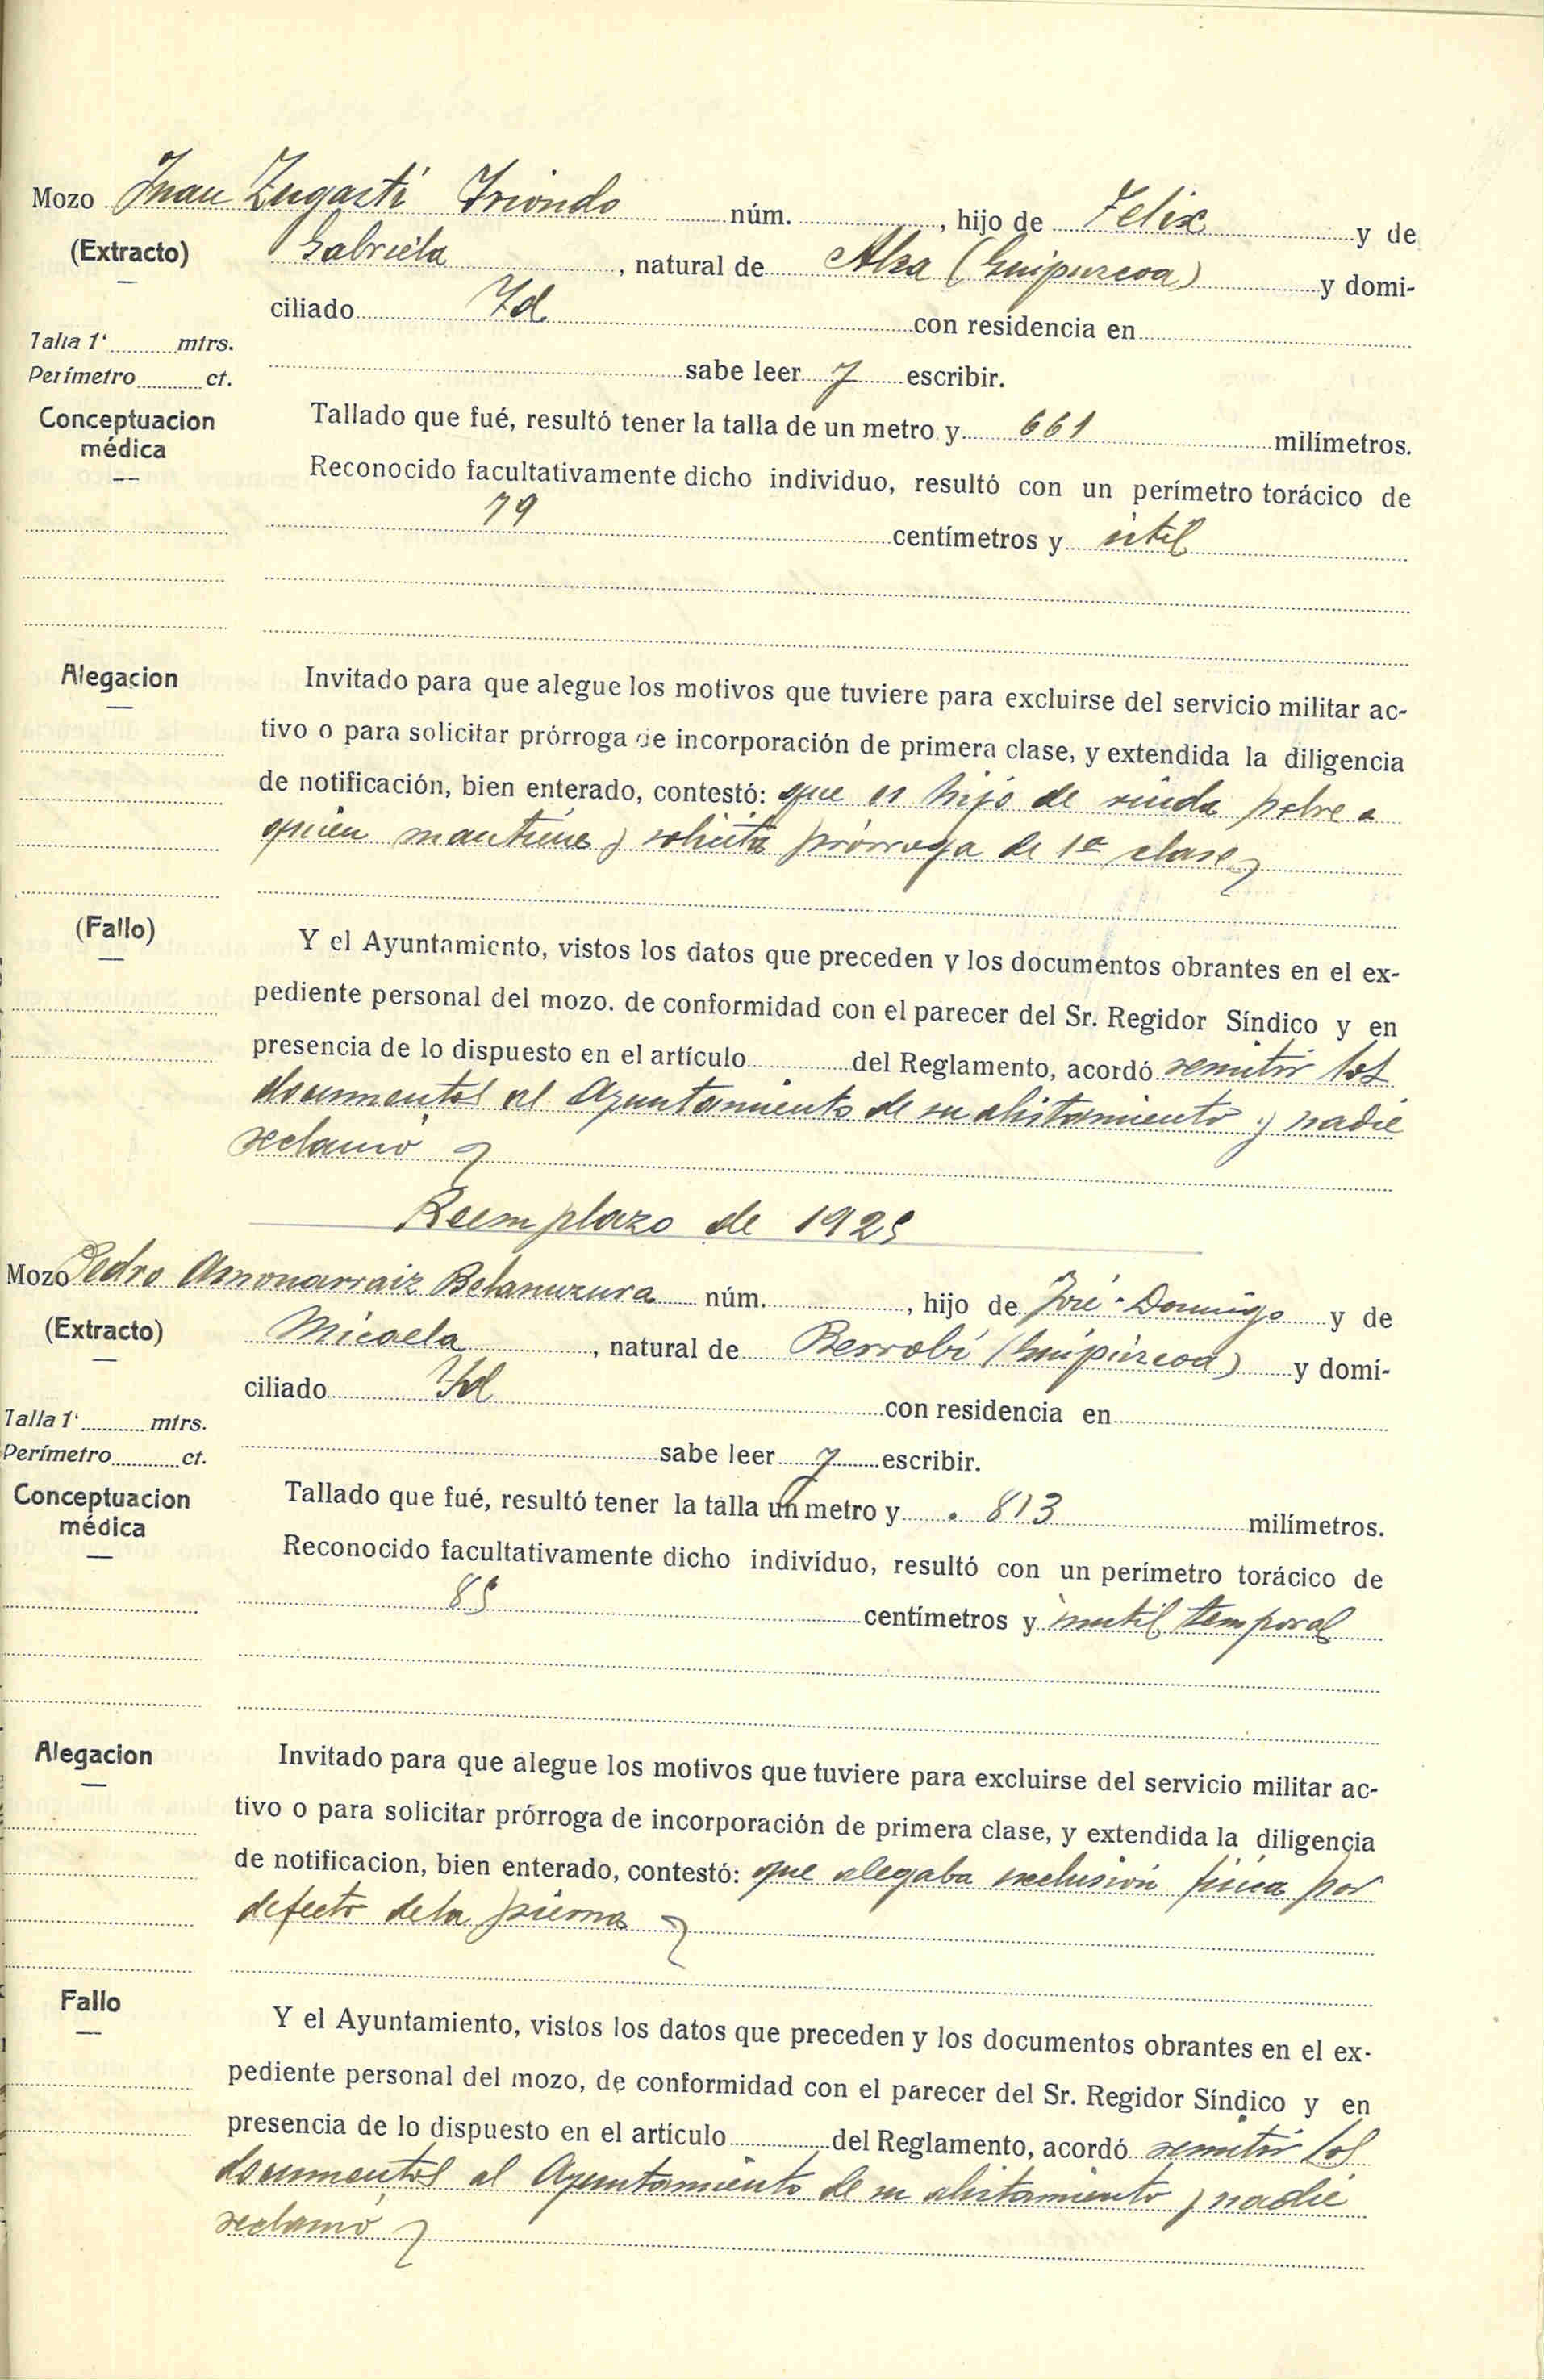 Mozo Juan Zugasti Iriondo núm. , hijo de Felix y de
(Extracto) Gabriela , natural de Alza (Guipuzcoa) y domi-
ciliado Id con residencia en
Talla 1' mtrs.
sabe leer y escribir.
Perímetro ct.
Conceptuacion
médica
Tallado que fué, resultó tener la talla de un metro y 661 milímetros.
Reconocido facultativamente dicho individuo, resultó con un perímetro torácico de
79 centímetros y útil
Alegacion
Invitado para que alegue los motivos que tuviere para excluirse del servicio militar ac-
tivo o para solicitar prórroga de incorporación de primera clase, y extendida la diligencia
de notificación, bien enterado, contestó: que es hijo de viuda pobre a
quien mantiene y solicita prórroga de 1ª clase
(Fallo)
Y el Ayuntamiento, vistos los datos que preceden y los documentos obrantes en el ex-
pediente personal del mozo. de conformidad con el parecer del Sr. Regidor Síndico y en
presencia de lo dispuesto en el artículo del Reglamento, acordó remitir los
documentos al Ayuntamiento de su alistamiento y nadie
reclamó
Reemplazo de 1925
Mozo Pedro Amonarraiz Belaunzura núm. , hijo de José-Domingo y de
(Extracto) Micaela , natural de Berrobi (Guipúzcoa) y domi-
ciliado Id con residencia en
Talla 1' mtrs.
sabe leer y escribir.
Perímetro ct.
Conceptuacion
médica
Tallado que fué, resultó tener la talla un metro y 813 milímetros.
Reconocido facultativamente dicho individuo, resultó con un perímetro torácico de
85 centímetros y inutil temporal
Alegacion
Invitado para que alegue los motivos que tuviere para excluirse del servicio militar ac-
tivo o para solicitar prórroga de incorporación de primera clase, y extendida la diligencia
de notificacion, bien enterado, contestó: que alegaba exclusión física por
defecto de la pierna
Fallo
Y el Ayuntamiento, vistos los datos que preceden y los documentos obrantes en el ex-
pediente personal del mozo, de conformidad con el parecer del Sr. Regidor Síndico y en
presencia de lo dispuesto en el artículo del Reglamento, acordó remitir los
documentos al Ayuntamiento de su alistamiento y nadie
reclamó